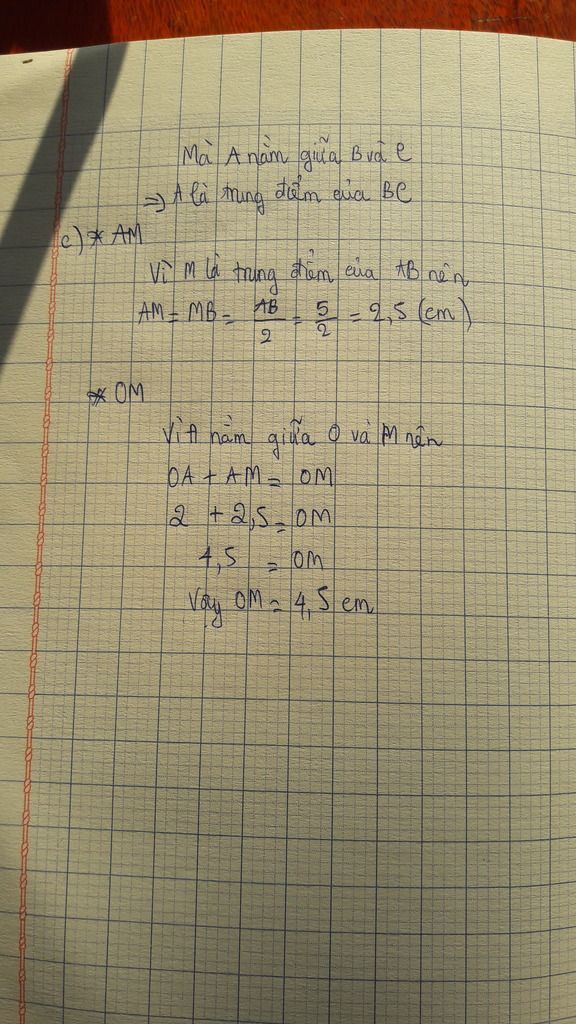 Mà A nằm giữa B và C
=> A là trung điểm của BC
c) * AM
Vì M là trung điểm của AB nên
AM = MB = AB/2 = 5/2 = 2,5 (cm)
* OM
Vì A nằm giữa O và M nên
OA + AM = OM
2 + 2,5 = OM
4,5 = OM
Vậy OM = 4,5 cm